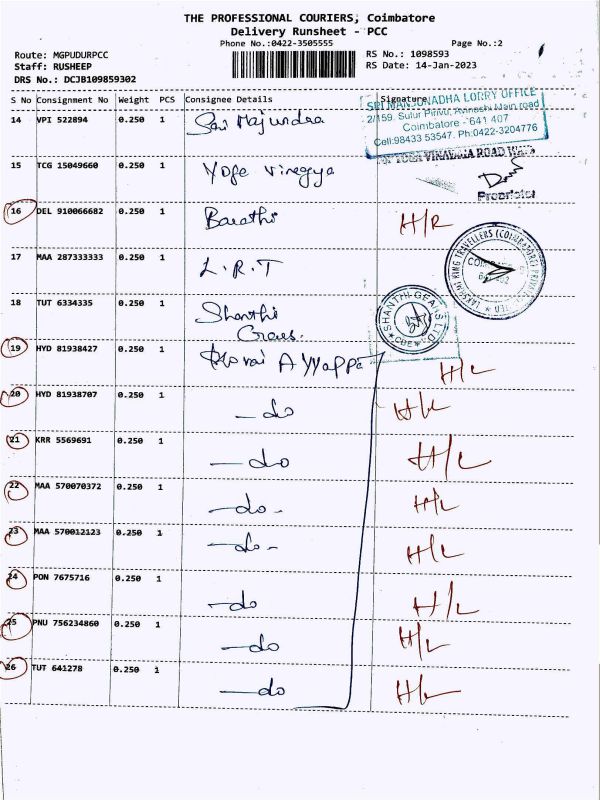 THE PROFESSIONAL COURIERS, Coimbatore
Delivery Runsheet - PCC
Phone No.:0422-3505555
Page No.:2
Route: MGPUDURPCC
Staff: RUSHEEP
DRS No.: DCJB109859302
RS No.: 1098593
RS Date: 14-Jan-2023
S No Consignment No Weight PCS Consignee Details Signature
SRI MANJUNADHA LORRY OFFICE
2/159, Sulur Pirivu, Avinashi Main road
Coimbatore - 641 407
Cell:98433 53547. Ph:0422-3204776
14 VPI 522894 0.250 1
15 TCG 15049660 0.250 1 Yoge Vinagya
YOGA VINAYAGA ROAD WAYS
Proprietor
16 DEL 910066682 0.250 1 Barathi H/R
17 MAA 287333333 0.250 1 L.R.T
LAKSHMI RING TRAVELLERS (COIMBATORE) PRIVATE LIMITED
18 TUT 6334335 0.250 1 Shanthi
Gears.
SHANTHI GEARS LTD. CBE
19 HYD 81938427 0.250 1 Ayyappa H/L
20 HYD 81938707 0.250 1 - do H/L
21 KRR 5569691 0.250 1 - do H/L
22 MAA 570070372 0.250 1 - do - H/L
23 MAA 570012123 0.250 1 - do - H/L
24 PON 7675716 0.250 1 - do H/L
25 PNU 756234860 0.250 1 - do H/L
26 TUT 641278 0.250 1 - do H/L